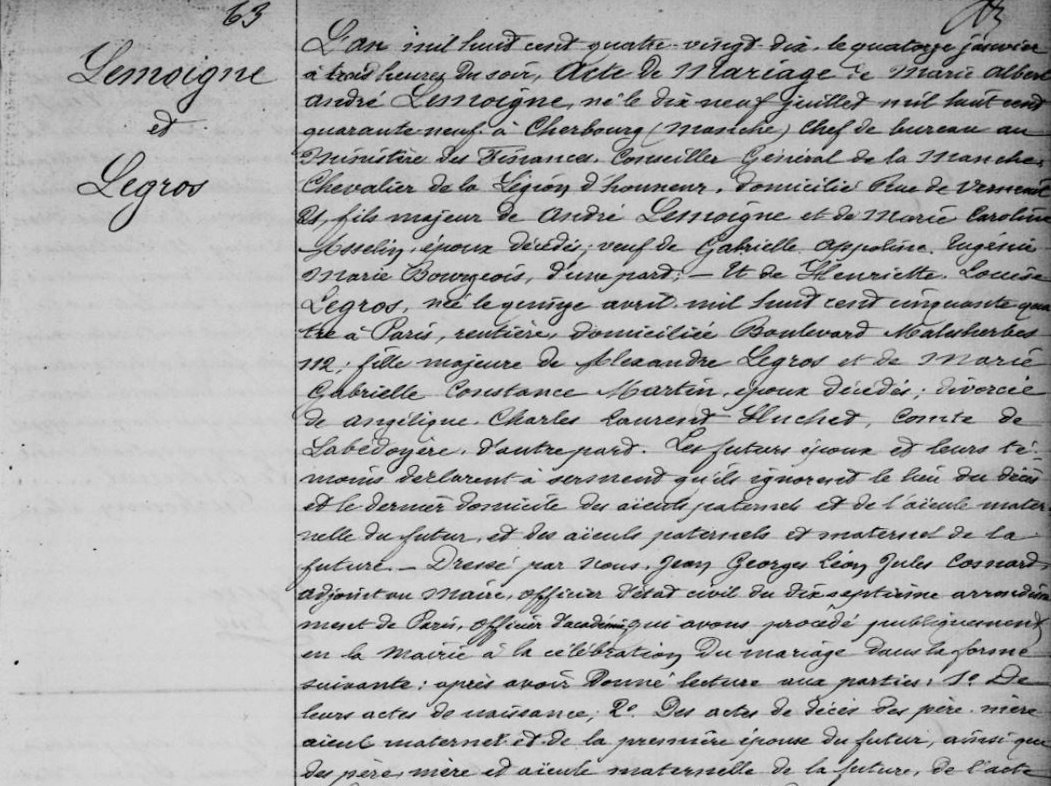 63
Lemoigne
et
Legros
L'an mil huit cent quatre-vingt-dix, le quatorze janvier
à trois heures du soir, Acte de Mariage de Marie Albert
André Lemoigne, né le dix neuf juillet mil huit cent
quarante neuf à Cherbourg (Manche) Chef de bureau au
Ministère des Finances, Conseiller Général de la Manche,
Chevalier de la Légion d'honneur, domicilié Rue de Verneuil
21, fils majeur de André Lemoigne et de Marie Caroline
Asselin, époux décédés; veuf de Gabrielle Appoline Eugénie
Marie Bourgeois, d'une part; — Et de Henriette Louise
Legros, née le quinze avril mil huit cent cinquante qua
tre à Paris, rentière, domiciliée Boulevard Malesherbes
112; fille majeure de Alexandre Legros et de Marie
Gabrielle Constance Martin, époux décédés; divorcée
de Angélique Charles Laurent Huchet, Comte de
Labédoyère, d'autre part. Les futurs époux et leurs té-
moins déclarent à serment qu'ils ignorent le lieu du décès
et le dernier domicile des aïeuls paternels et de l'aïeule mater
nelle du futur, et des aïeuls paternels et maternel de la
future. — Dressé par nous, Jean Georges Léon Jules Cosnard,
adjoint au Maire, officier d'état civil du dix septième arrondisse
ment de Paris, officier d'académie, qui avons procédé publiquement
en la Mairie à la célébration du mariage dans la forme
suivante: après avoir donné lecture aux parties: 1º De
leurs actes de naissance; 2º Des actes de décès des père, mère
aïeul maternel et de la première épouse du futur, ainsi que
des père, mère et aïeule maternelle de la future, de l'acte